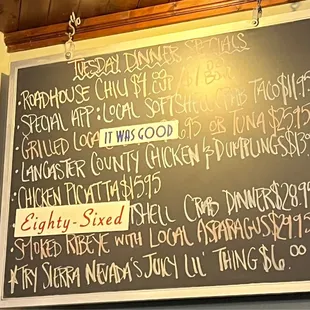 TUESDAY DINNER SPECIALS
· ROADHOUSE CHILI $4.00 CUP / $ BOWL
· SPECIAL APP: LOCAL SOFTSHELL CRAB TACO $11.95
· GRILLED LOCA IT WAS GOOD 6.95 OR TUNA $25.95
· LANCASTER COUNTY CHICKEN & DUMPLINGS $13
· CHICKEN PICATTA $15.95
Eighty-Sixed TSHELL CRAB DINNER $28.9
· SMOKED RIBEYE WITH LOCAL ASPARAGUS $29.95
*TRY SIERRA NEVADA'S JUICY LIL' THING $6.00